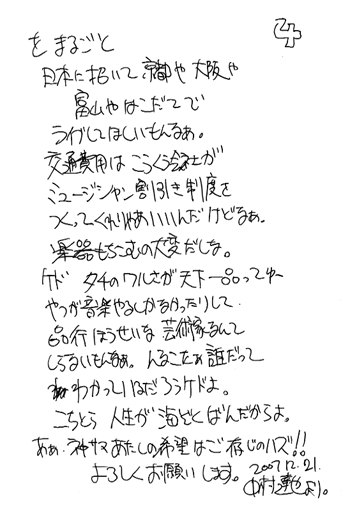 4
をまるごと
日本に招いて、京都や大阪や
富山やはこだてで
ライヴしてほしいもんなぁ。
交通費用はこうくう会社が
ミュージシャン割引き制度を
つくってくれりゃあいいんだけどなぁ。
楽器もちこむの大変だしな。
ケド タチのワルさが天下一品ってゆー
やつが音楽やるしかなかったりして
品行ほうせいな芸術家なんて
しらないもんなぁ。んなこたぁ誰だって
わかっているだろうケドよ。
こちとら人生が海どくばんだからよ。
あぁ、ネ申サマあたしの希望はご存じのハズ!!
よろしくお願いします。2007.12.21.
中村達也より。